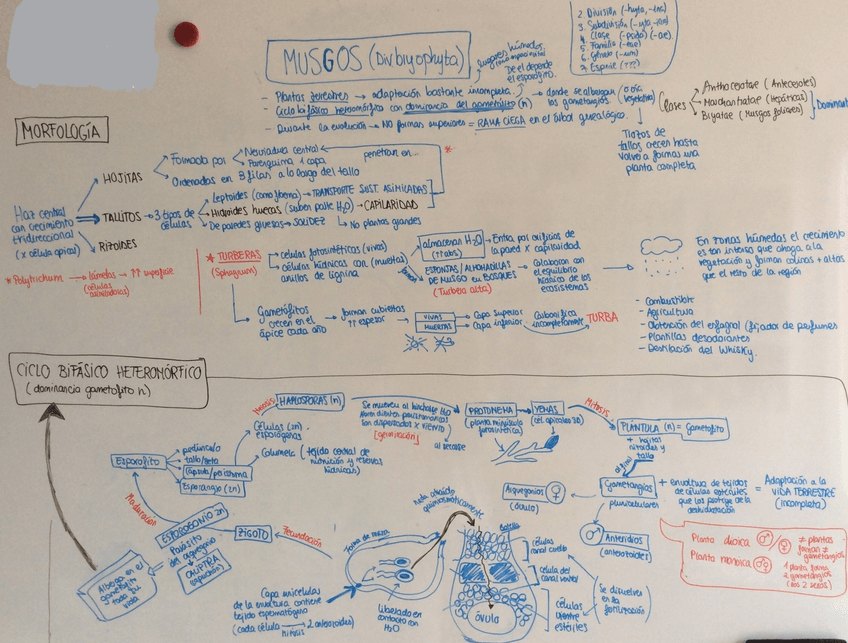 MUSGOS (Div bryophyta)
2. División (-hyta, -ina)
3. Subdivisión
4. Clase
5. Familia
6. Género
7. Especie (???)
- Plantas terrestres → adaptación bastante incompleta.
lugares húmedos
De él depende el esporofito.
- Ciclo bifásico heteromórfico con dominancia del gametofito (n)
→ donde se albergan
los gametangios.
- Durante la evolución → NO forman superiores = RAMA CIEGA en el árbol genealógico.
Clases
Anthoceratae (Anterocetes)
Marchantiatae (Hepáticas)
Bryatae (Musgos foliares)
Trozos de
tallos crecen hasta
volver a formar una
planta completa
MORFOLOGÍA
Haz central
con crecimiento
tridireccional
(x célula apical)
HOJITAS
Formada por
Nerviadura central
Parénquima 1 capa
penetran en...
Ordenadas en 3 filas a lo largo del tallo
TALLITOS → 3 tipos de
células
Leptoides (como floema) → TRANSPORTE SUST. ASIMILADAS
Hidroides huecas (suben parte H₂O) → CAPILARIDAD
De paredes gruesas → SOLIDEZ
↳ No plantas grandes
RIZOIDES
* Polytrichum → láminas → ↑↑ superficie
(células
asimiladoras)
* TURBERAS
(Sphagnum)
células fotosintéticas (vivas)
células hídricas con (muertas)
anillos de lignina
almacenan H₂O
Entra por orificios de
la pared x capilaridad
ESPONJAS/ALMOHADILLAS
DE MUSGO EN BOSQUES
(Turbera alta)
Colaboran con
el equilibrio
hídrico de los
ecosistemas
En zonas húmedas el crecimiento
es tan intenso que ahoga a la
vegetación y forman colinas + altas
que el resto de la región
Gametófitos
crecen en el
ápice cada año
forman cubiertas
↑↑ espesor
VIVAS → Capa superior
MUERTAS → Capa inferior
Carbonifica
incompletamente
TURBA
- Combustible
- Agricultura
- Obtención del esfagnol (fijador de perfumes
- Plantillas desodorantes
- Destilación del Whisky.
CICLO BIFÁSICO HETEROMÓRFICO
(dominancia gametofito n)
Esporofito
pedúnculo
tallo/seta
cápsula
Esporangio (2n)
Células (2n)
esporógenas
Columela (tejido central de
nutrición y reservas
hídricas)
Meiosis
HAPLOSPORAS (n)
Son dispersadas x VIENTO
[germinación]
PROTONEMA
(planta minúscula
fotosintética)
YEMAS
(cél. apicales 3D)
Mitosis
PLÁNTULA (n) = Gametofito
+ hojitas
rizoides y
tallo
Gametangios
pluricelulares
+ envoltura de tejidos
de células estériles
que los protege de la
deshidratación
= Adaptación a la
VIDA TERRESTRE
(incompleta)
Arquegonios ♀
(óvulo)
Anteridios ♂
(anterozoides)
Planta dioica ♂/♀ ≠ plantas
forman ≠
gametangios
Planta monoica
1 planta forma
2 gametangios
(los 2 sexos)
Maduración
ESPOROGONIO 2n
Parásito
del arquegonio
CALIPTRA
Alberga en el
gametofito
toda su
vida
ZIGOTO
Fecundación
Forma de maza
Nada atraído
quimiotácticamente
Capa unicelular
de la envoltura contiene
tejido espermatógeno
(cada célula → 2 anterozoides)
mitosis
liberado en
contacto con
H₂O
células
canal cuello
célula del
canal ventral
células
vientre
estériles
óvulo
Se disuelven
en la
fecundación